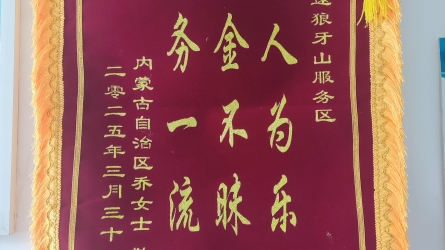 狼牙山服务区
人为乐
金不昧
务一流
内蒙古自治区乔女士
二零二五年三月三十